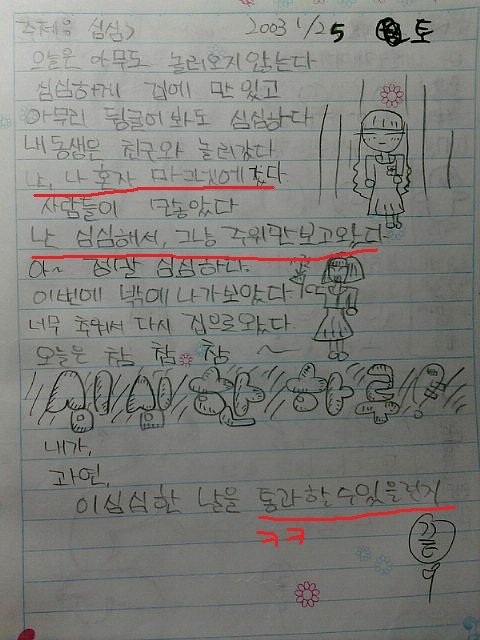 주제: 심심 2003 1/25 토
오늘은 아무도 놀러오지 않는다
심심하게 집에 만 있고
아무리 뒹굴어 봐도 심심하다
내 동생은 친구와 놀러갔다
난, 나 혼자 갔다
사람들이 많았다
난 심심해서, 그냥 주위만 보고 왔다
아~ 정말 심심하다.
이번에 밖에 나가 보았다.
너무 추워서 다시 집으로 왔다
오늘은 참 참 참 ~
심심한 하루?
내가,
과연,
이 심심한 날을 통과할 수 있을런지
ㅋㅋ
끝